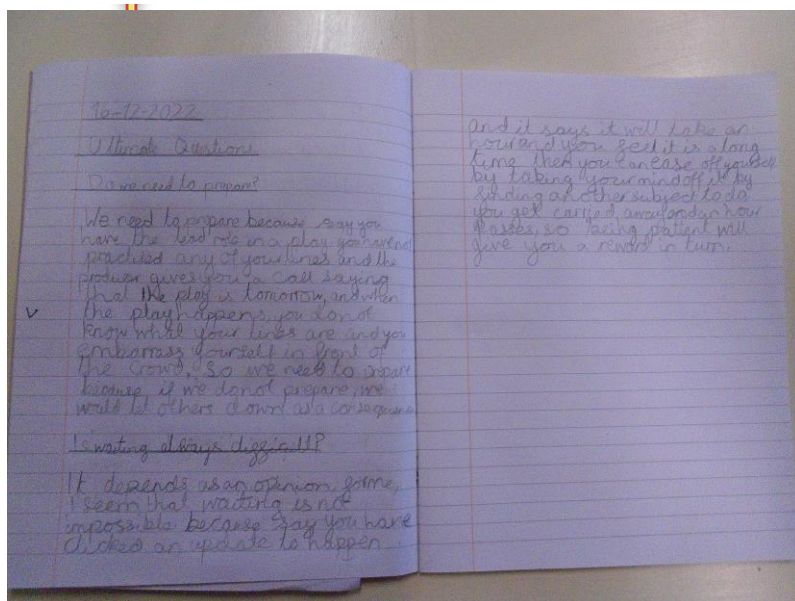 16-12-2022
Ultimate Questions
Do we need to prepare?
We need to prepare because say you
have the lead role in a play you have not
practised any of your lines and the
producer gives you a call saying
that the play is tomorrow, and when
the play happens, you do not
know what your lines are and you
embarrass yourself in front of
the crowd, so we need to prepare
because if we do not prepare, we
would let others down as a consequence
Is waiting always difficult?
It depends as an opinion, for me,
I seem that waiting is not
impossible because say you have
clicked an update to happen
and it says it will take an
hour and you feel it is a long
time then you can ease off yourself
by taking your mind off it by
finding another subject to do
you get carried away and an hour
passes, so being patient will
give you a reward in turn.